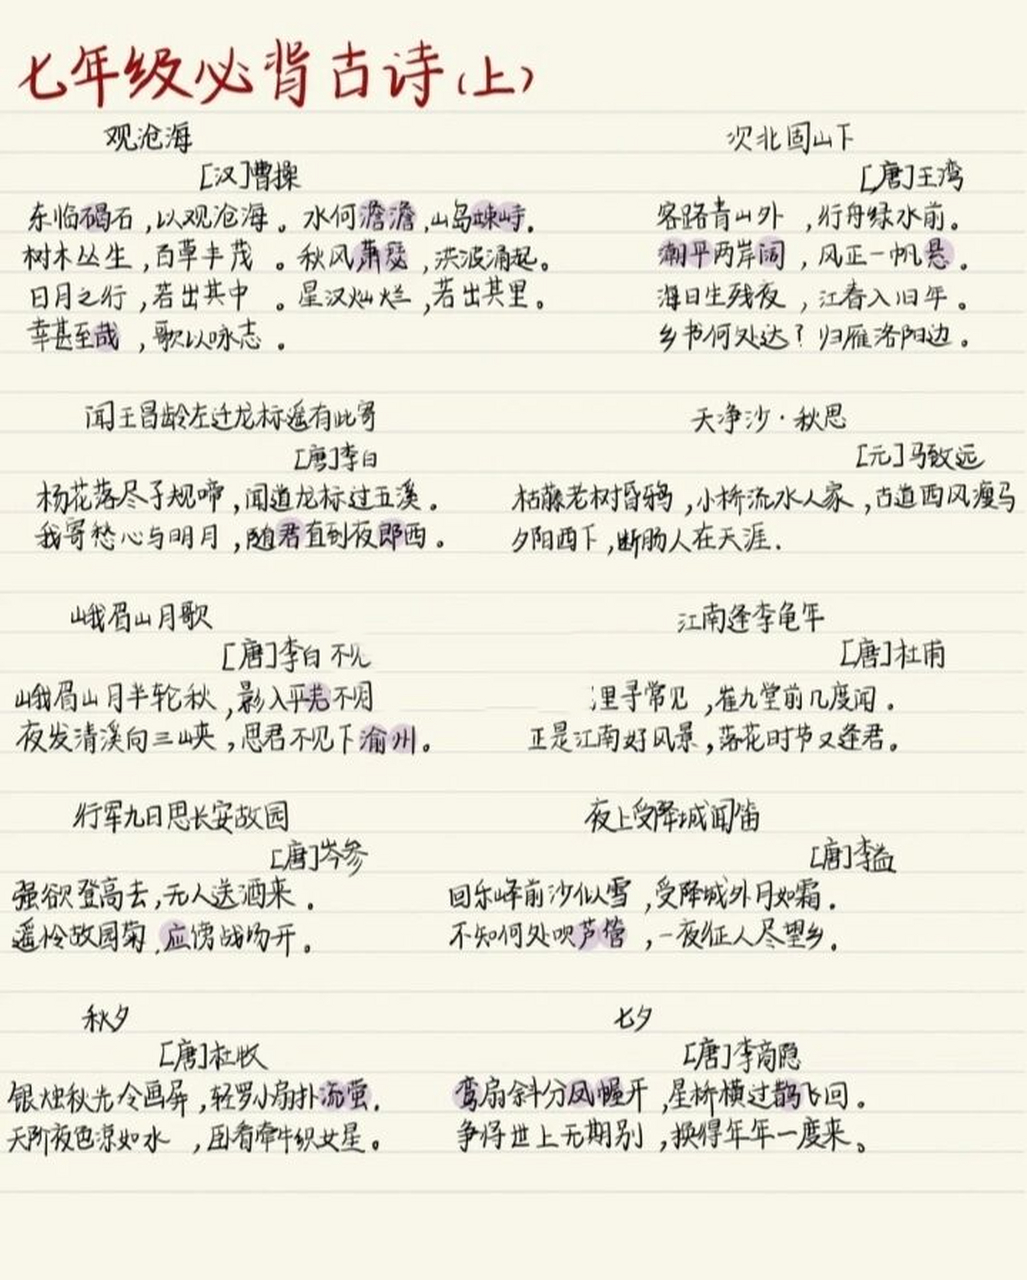 七年级必背古诗(上)
观沧海
[汉]曹操
东临碣石,以观沧海。水何澹澹,山岛竦峙。
树木丛生,百草丰茂。秋风萧瑟,洪波涌起。
日月之行,若出其中。星汉灿烂,若出其里。
幸甚至哉,歌以咏志。
次北固山下
[唐]王湾
客路青山外,行舟绿水前。
潮平两岸阔,风正一帆悬。
海日生残夜,江春入旧年。
乡书何处达?归雁洛阳边。
闻王昌龄左迁龙标遥有此寄
[唐]李白
杨花落尽子规啼,闻道龙标过五溪。
我寄愁心与明月,随君直到夜郎西。
天净沙·秋思
[元]马致远
枯藤老树昏鸦,小桥流水人家,古道西风瘦马
夕阳西下,断肠人在天涯.
峨眉山月歌
[唐]李白 不见
峨眉山月半轮秋,影入平羌不月
夜发清溪向三峡,思君不见下渝州。
江南逢李龟年
[唐]杜甫
里寻常见,崔九堂前几度闻.
正是江南好风景,落花时节又逢君。
行军九日思长安故园
[唐]岑参
强欲登高去,无人送酒来.
遥怜故园菊,应傍战场开.
夜上受降城闻笛
[唐]李益
回乐峰前沙似雪,受降城外月如霜.
不知何处吹芦管,一夜征人尽望乡.
秋夕
[唐]杜牧
银烛秋光冷画屏,轻罗小扇扑流萤.
天阶夜色凉如水,卧看牵牛织女星。
七夕
[唐]李商隐
鸾扇斜分凤幄开,星桥横过鹊飞回.
争将世上无期别,换得年年一度来。